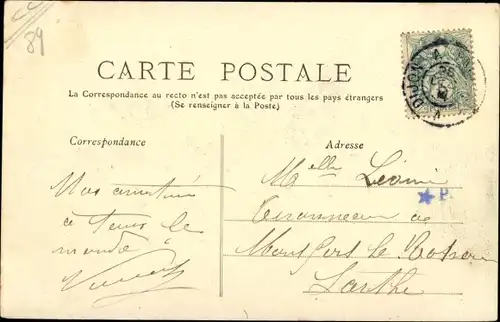 CC
89
CARTE POSTALE
La Correspondance au recto n'est pas acceptée par tous les pays étrangers
(Se renseigner à la Poste)
DIJON
Correspondance
Adresse
Melle Léonie
Nos amitiés
à tous le
monde
Montfort le Rotrou
Sarthe